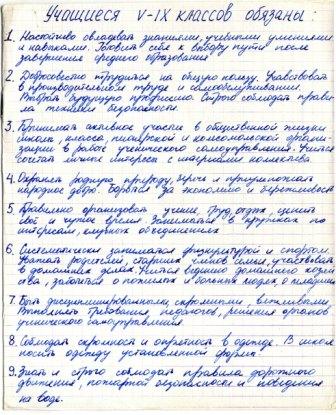 Учащиеся V-IX классов обязаны:
1. Настойчиво овладевать знаниями, учебными умениями
и навыками. Готовить себя к выбору пути после
завершения среднего образования
2. Добросовестно трудиться на общую пользу. Участвовать
в производительном труде и самообслуживании.
Выбрать будущую профессию. Строго соблюдать прави
ла техники безопасности.
3. Принимать активное участие в общественной жизни
школы, класса, пионерской и комсомольской органи
зации в работе ученического самоуправления. Учиться
сочетать личные интересы с интересами коллектива.
4. Охранять родную природу, беречь и приумножать
народное добро. Бороться за экономию и бережливость
5. Правильно организовать учение, труд, отдых, ценить
своё и чужое время. Заниматься в кружках по
интересам, клубных объединениях
6. Систематически заниматься физкультурой и спортом.
Уважать родителей, старших членов семьи, участвовать
в домашних делах. Учиться ведению домашнего хозяй
ства, заботиться о пожилых и больных людях, о младших
7. Быть дисциплинированными, скромными, вежливыми.
Выполнять требования педагогов, решения органов
ученического самоуправления.
8. Соблюдать скромность и опрятность в одежде. В школе
носить одежду установленной формы.
9. Знать и строго соблюдать правила дорожного
движения, пожарной безопасности и поведения
на воде.